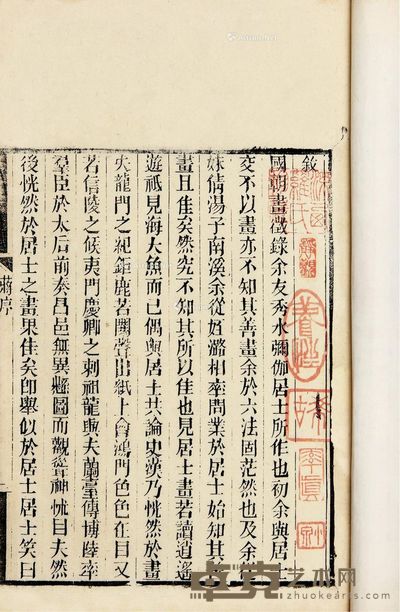 敘
國朝畫徵錄余友秀水彌伽居士所作也初余與居
交不以畫亦不知其善畫余於六法固茫然也及余
妹倩湯子南溪余從姪潞相率問業於居士始知其
畫且佳矣然究不知其所以佳也見居士畫若讀逍遙
遊祗見海大魚而已偶與居士共論史漢乃恍然於畫
夫龍門之紀鉅鹿若鬬聲出紙上會鴻門色色在目又
若信陵之候夷門慶卿之刺祖龍與夫蘭臺傳博陸率
羣臣於太后前奏昌邑無異懸圖而觀聳神怵目夫然
後恍然於居士之畫果佳矣卽舉似於居士居士笑曰
蔣序
卓克艺术网
www.zhuokearts.com